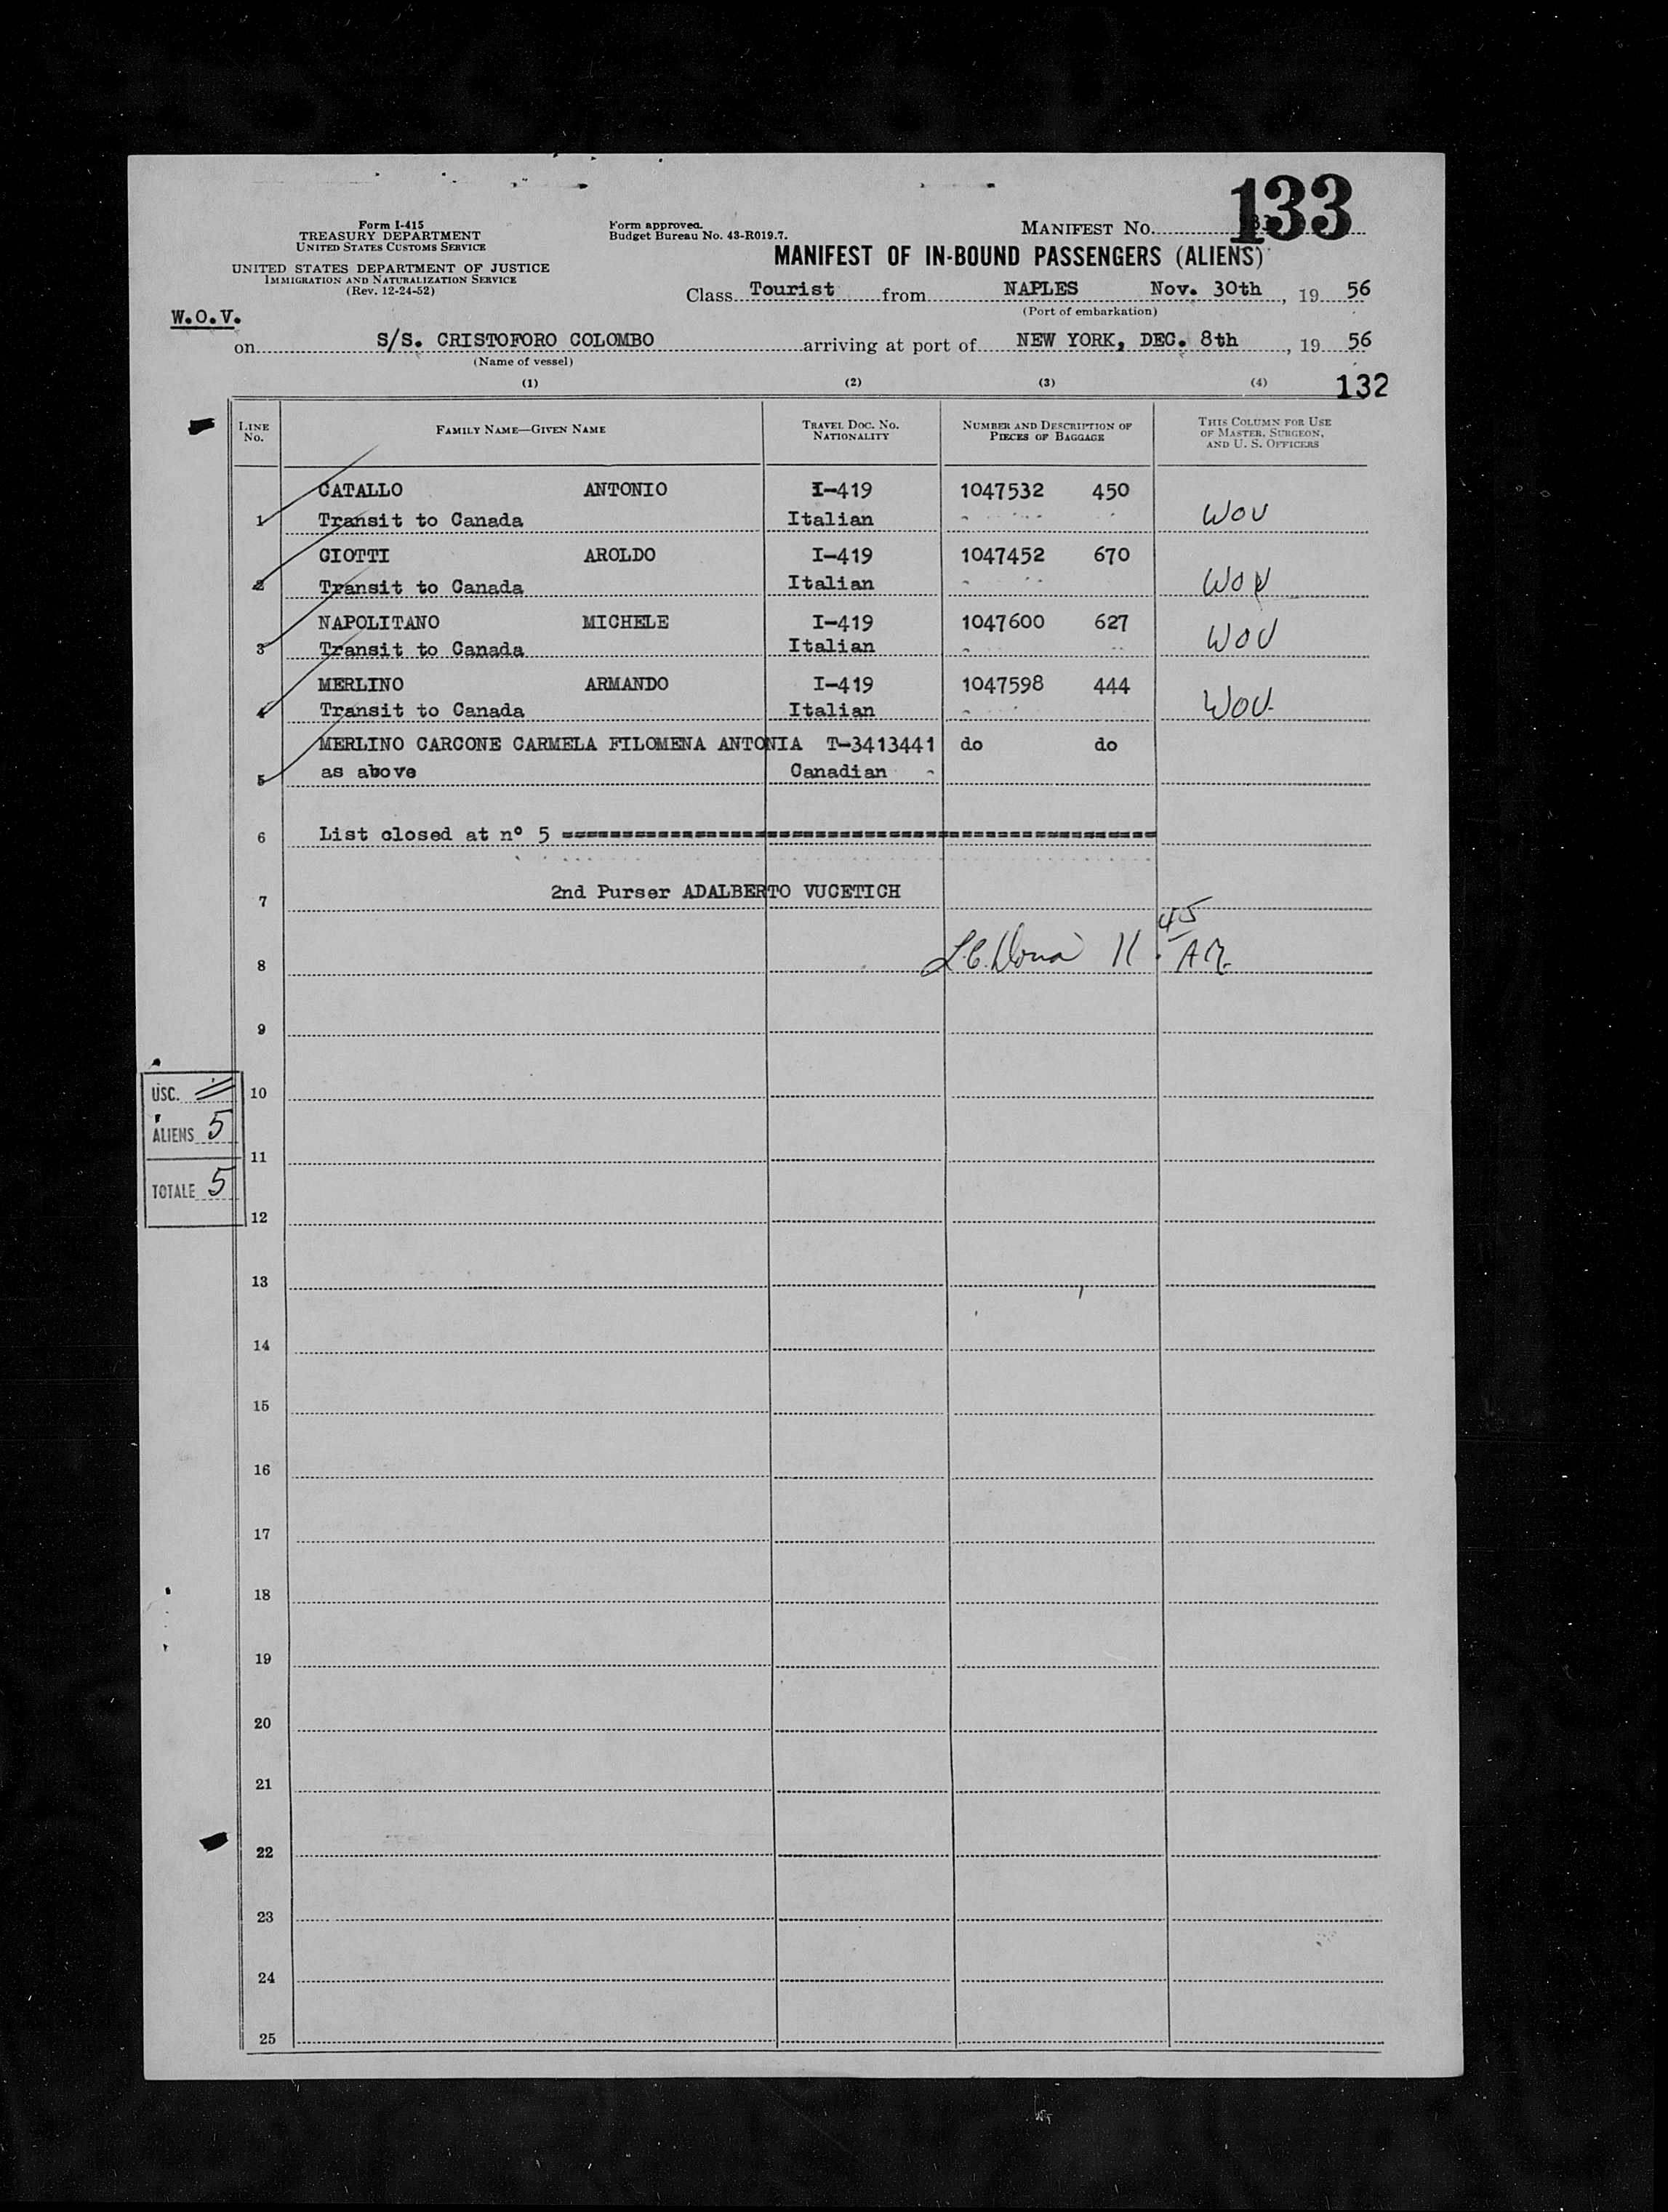 133
Form I-415
TREASURY DEPARTMENT
UNITED STATES CUSTOMS SERVICE
UNITED STATES DEPARTMENT OF JUSTICE
IMMIGRATION AND NATURALIZATION SERVICE
(Rev. 12-24-52)
Form approved.
Budget Bureau No. 43-R019.7.
MANIFEST NO.
MANIFEST OF IN-BOUND PASSENGERS (ALIENS)
Class Tourist from NAPLES Nov. 30th, 19 56
(Port of embarkation)
W.O.V.
on S/S. CRISTOFORO COLOMBO arriving at port of NEW YORK, DEC. 8th, 19 56
(Name of vessel)
(1) (2) (3) (4) 132
LINE No. FAMILY NAME—GIVEN NAME TRAVEL DOC. NO. NATIONALITY NUMBER AND DESCRIPTION OF PIECES OF BAGGAGE THIS COLUMN FOR USE OF MASTER, SURGEON, AND U. S. OFFICERS
CATALLO ANTONIO I-419 1047532 450
1 Transit to Canada Italian WOV
GIOTTI AROLDO I-419 1047452 670
2 Transit to Canada Italian WOV
NAPOLITANO MICHELE I-419 1047600 627
3 Transit to Canada Italian WOV
MERLINO ARMANDO I-419 1047598 444
4 Transit to Canada Italian WOV
MERLINO CARCONE CARMELA FILOMENA ANTONIA T-3413441 do do
5 as above Canadian -
6 List closed at nº 5
7 2nd Purser ADALBERTO VUCETICH
8 11.45 A.M.
9
USC.
10
ALIENS 5
11
TOTALE 5
12
13
14
15
16
17
18
19
20
21
22
23
24
25